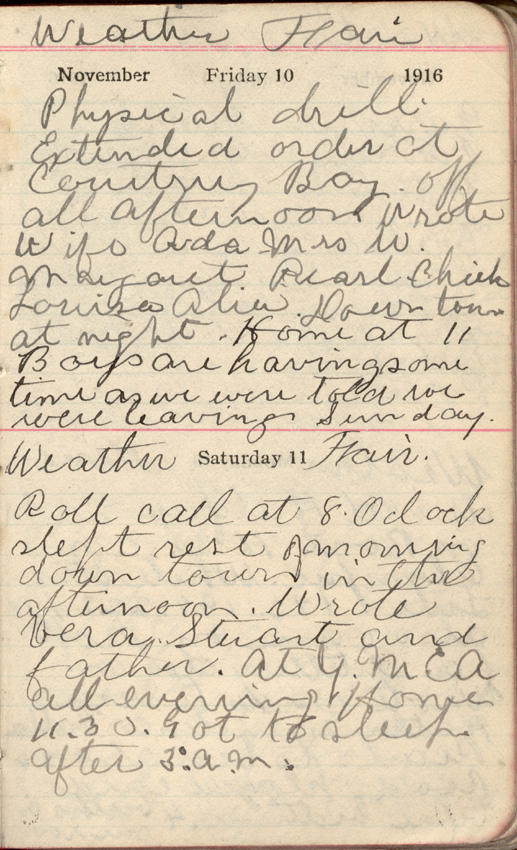 Weather Fair
November Friday 10 1916
Physical drill.
Extended order at
Courtney Bay. off
all afternoon Wrote
Wife Ada Mrs W.
Margaret Pearl Chick
Louisa Alice. Down town
at night. Home at 11
Boys are having some
time as we were told we
were leaving Sunday.
Weather Saturday 11 Fair.
Roll call at 8. Oclock
slept rest of morning
down town in the
afternoon. Wrote
Vera, Stuart and
father. At Y.M.C.A
all evening Home
11.30. Got to sleep
after 3.a.m.